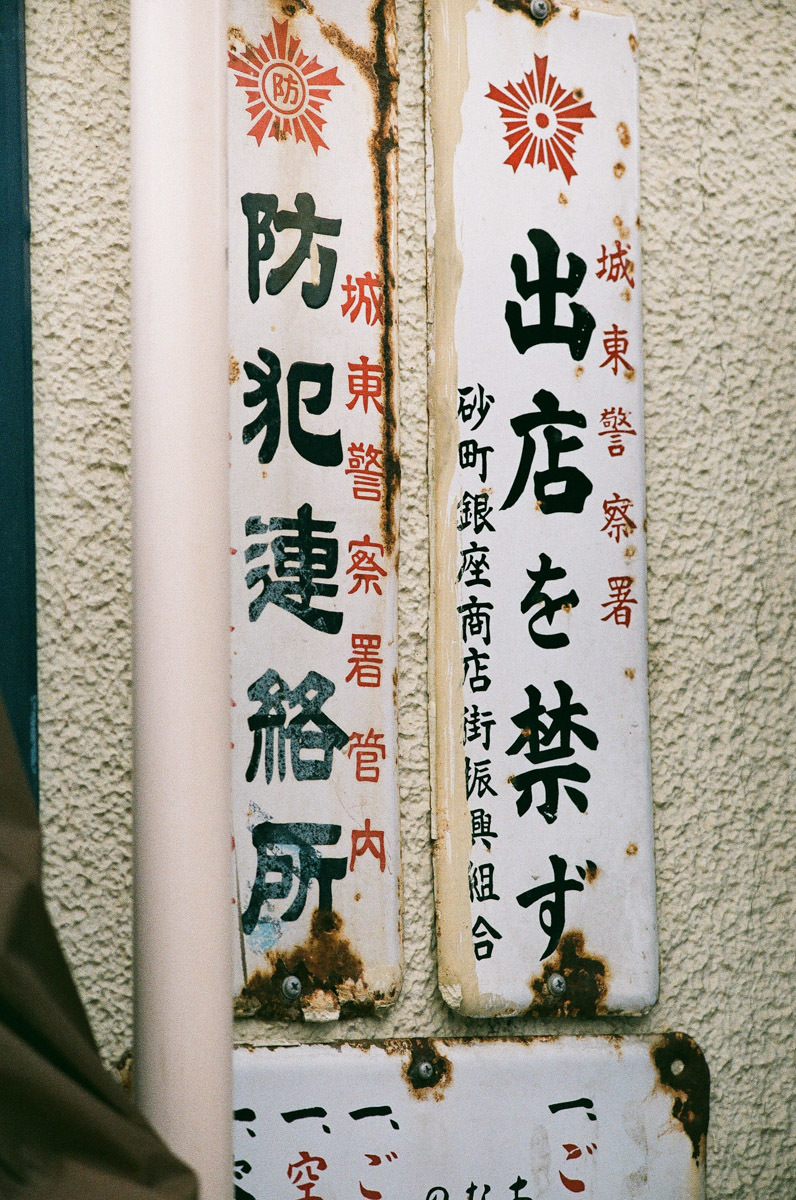 城東警察署
出店を禁ず
砂町銀座商店街振興組合
防
城東警察署管内
防犯連絡所
一、ご
一、ご
一、空
一、